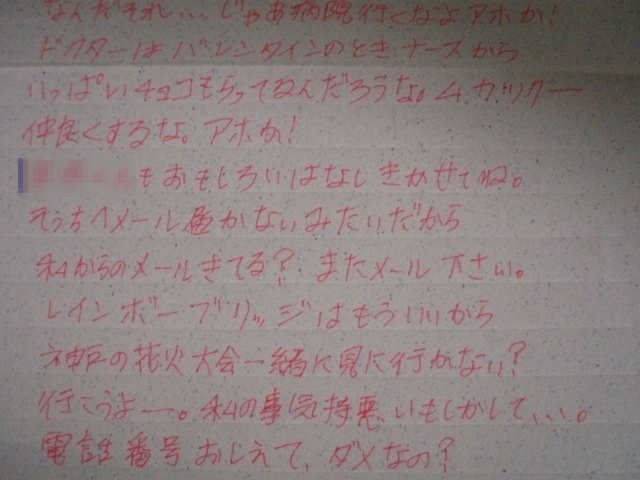 なんだそれ、、、じゃあ病院行くなよアホか!
ドクターはバレンタインのときナースから
いっぱいチョコもらってるんだろうな。ムカツクー
仲良くするな。アホか!
もおもしろいはなしきかせてね。
そっちへメール届かないみたいだから
私からのメールきてる? またメール下さい。
レインボーブリッジはもういいから
神戸の花火大会一緒に見に行かない?
行こうよー。私の事気持悪いもしかして、、、。
電話番号おしえて、ダメなの?